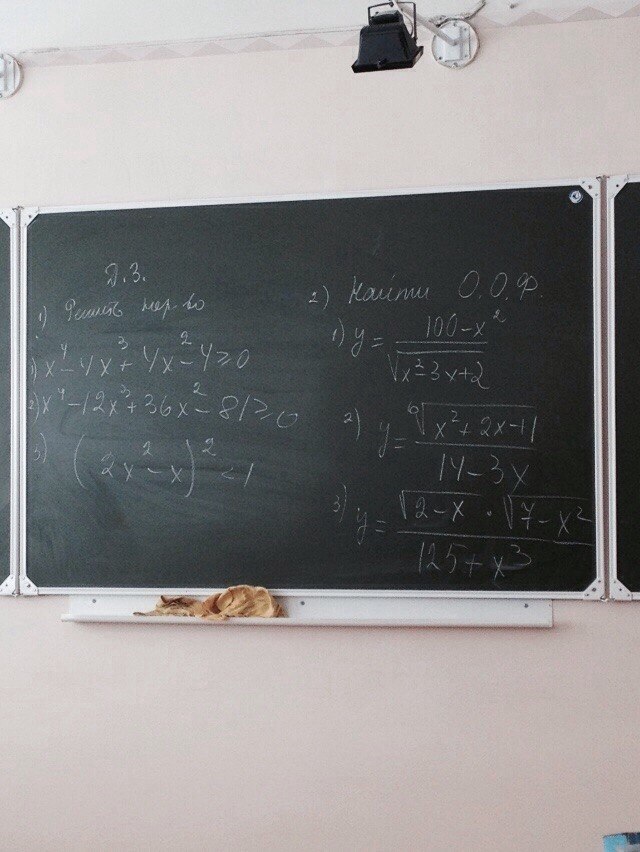 Д.З.
1) Решить нер-во
1) x⁴ - 4x³ + 4x² - 4 ≥ 0
2) x⁴ - 12x³ + 36x² - 81 ≥ 0
3) (2x² - x)² < 1
2) Найти О.О.Ф.
1) y = (100 - x²) / √(x² - 3x + 2)
2) y = ⁶√(x² + 2x - 11) / (14 - 3x)
3) y = (√(2 - x) · √(7 - x²)) / (125 + x³)